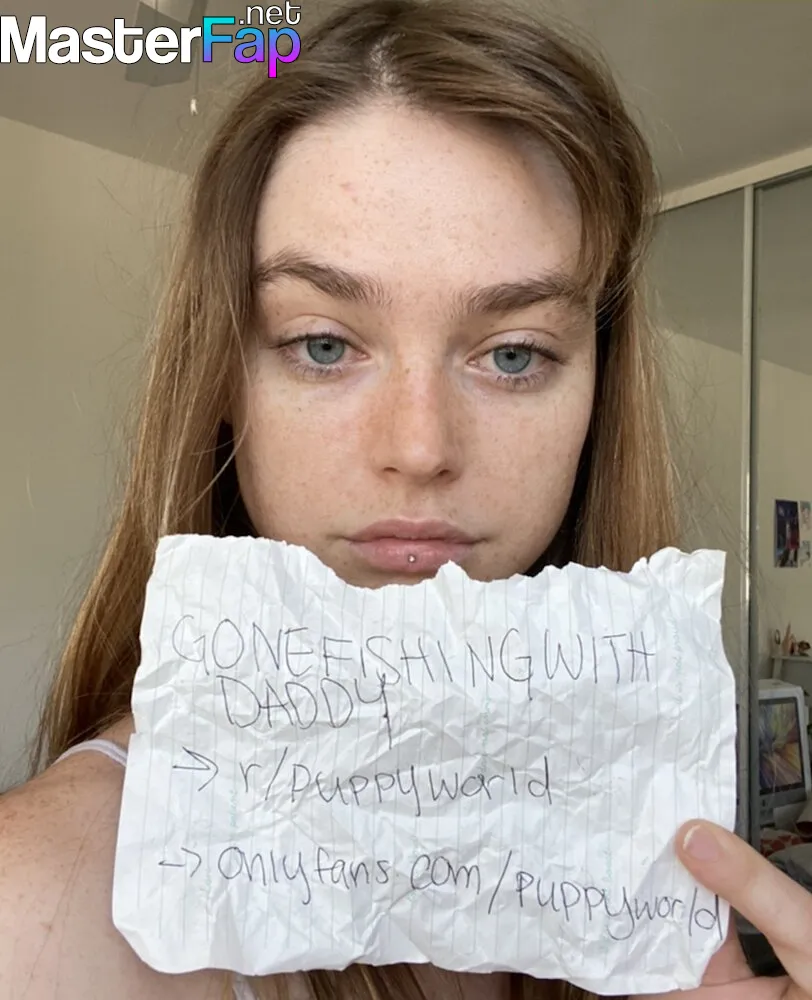 MasterFap.net
GONEFISHINGWITH
DADDY
-> r/puppyworld
-> onlyfans.com/puppyworld